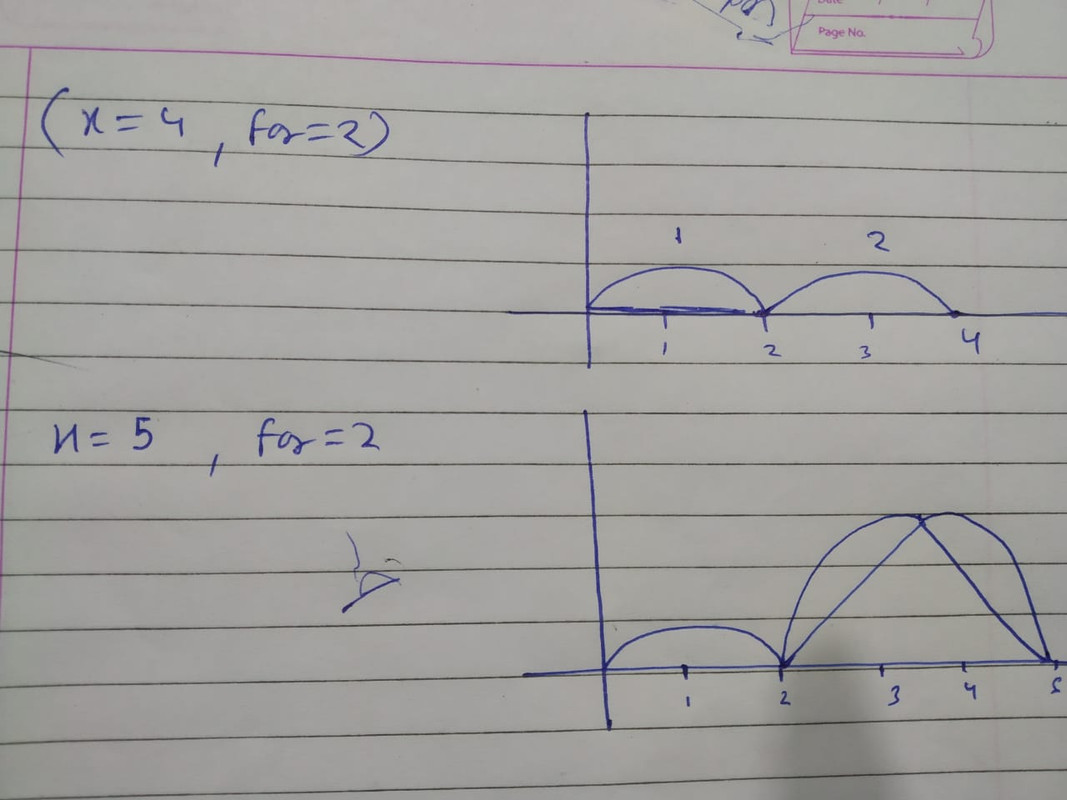 Date
Page No.
(x = 4 , for = 2)
1 2
1 2 3 4
x = 5 , for = 2
1 2 3 4 5